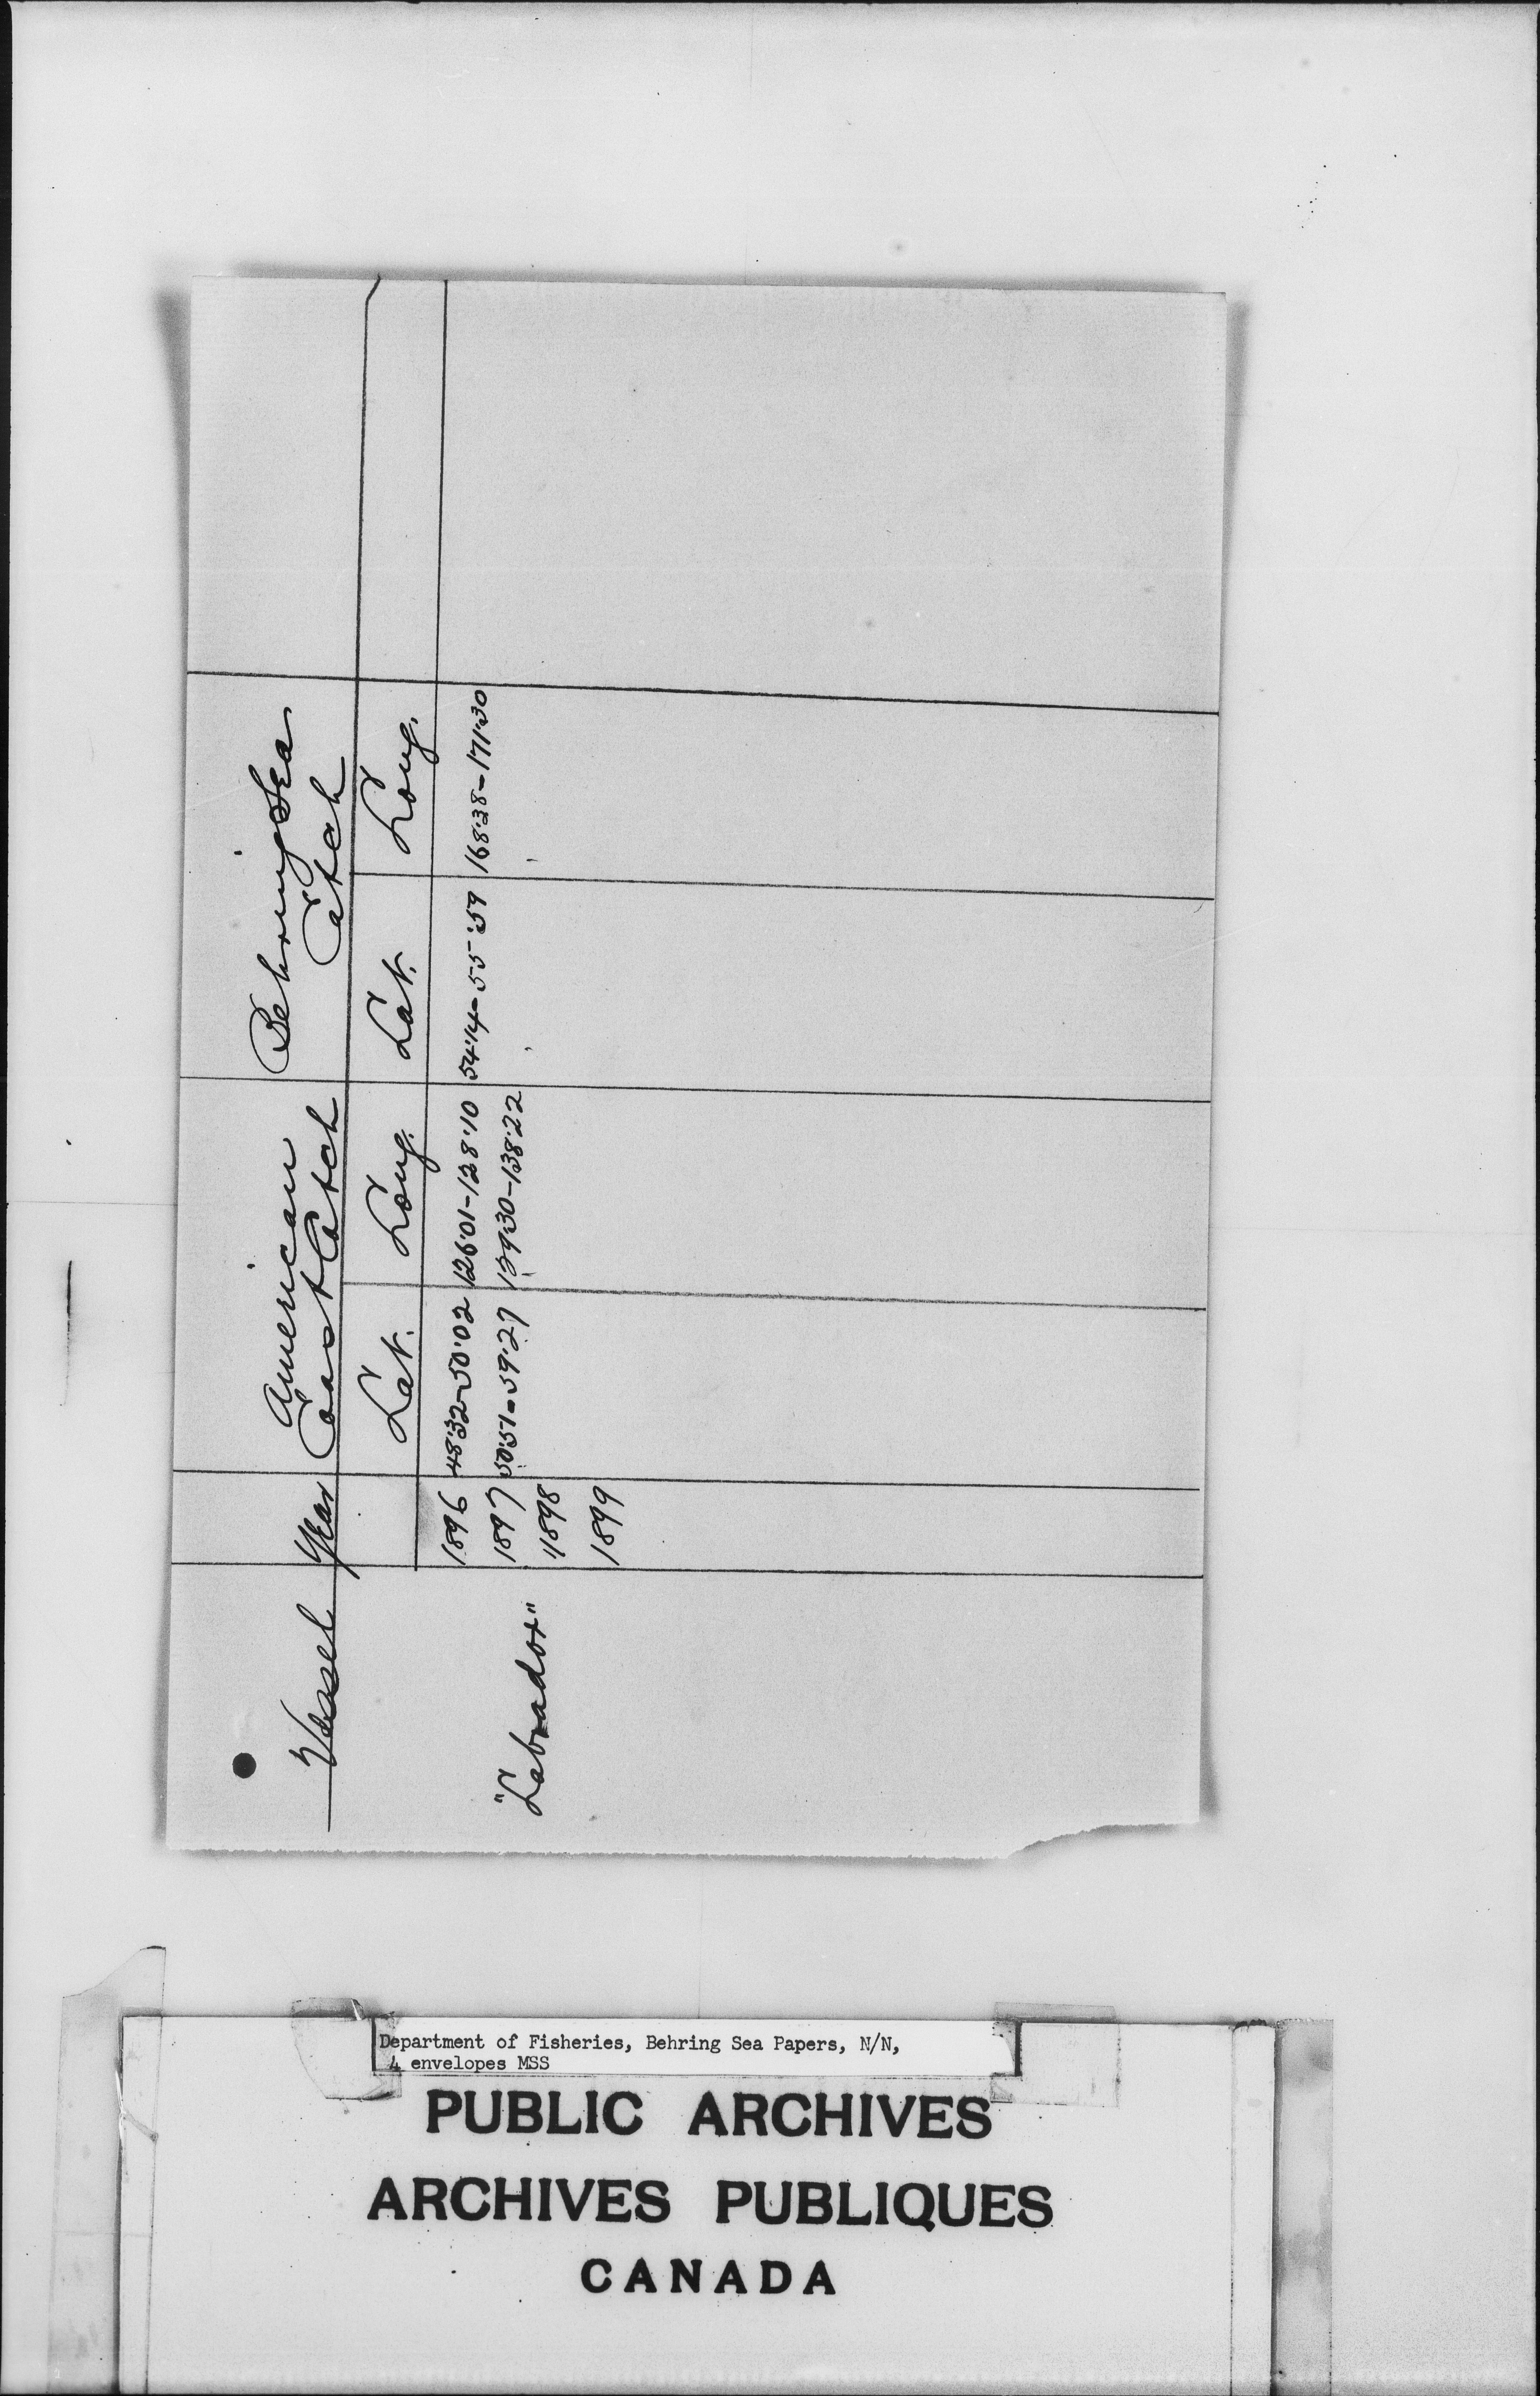 Vessel Year American Coast Catch Behring Sea Catch
Lat. Long. Lat. Long.
1896 48.32-50.02 126.01-128.10 54.14-55.59 168.38-171.30
"Labrador" 1897 50.51-59.27 139.30-138.22
1898
1899
Department of Fisheries, Behring Sea Papers, N/N,
4 envelopes MSS
PUBLIC ARCHIVES
ARCHIVES PUBLIQUES
CANADA